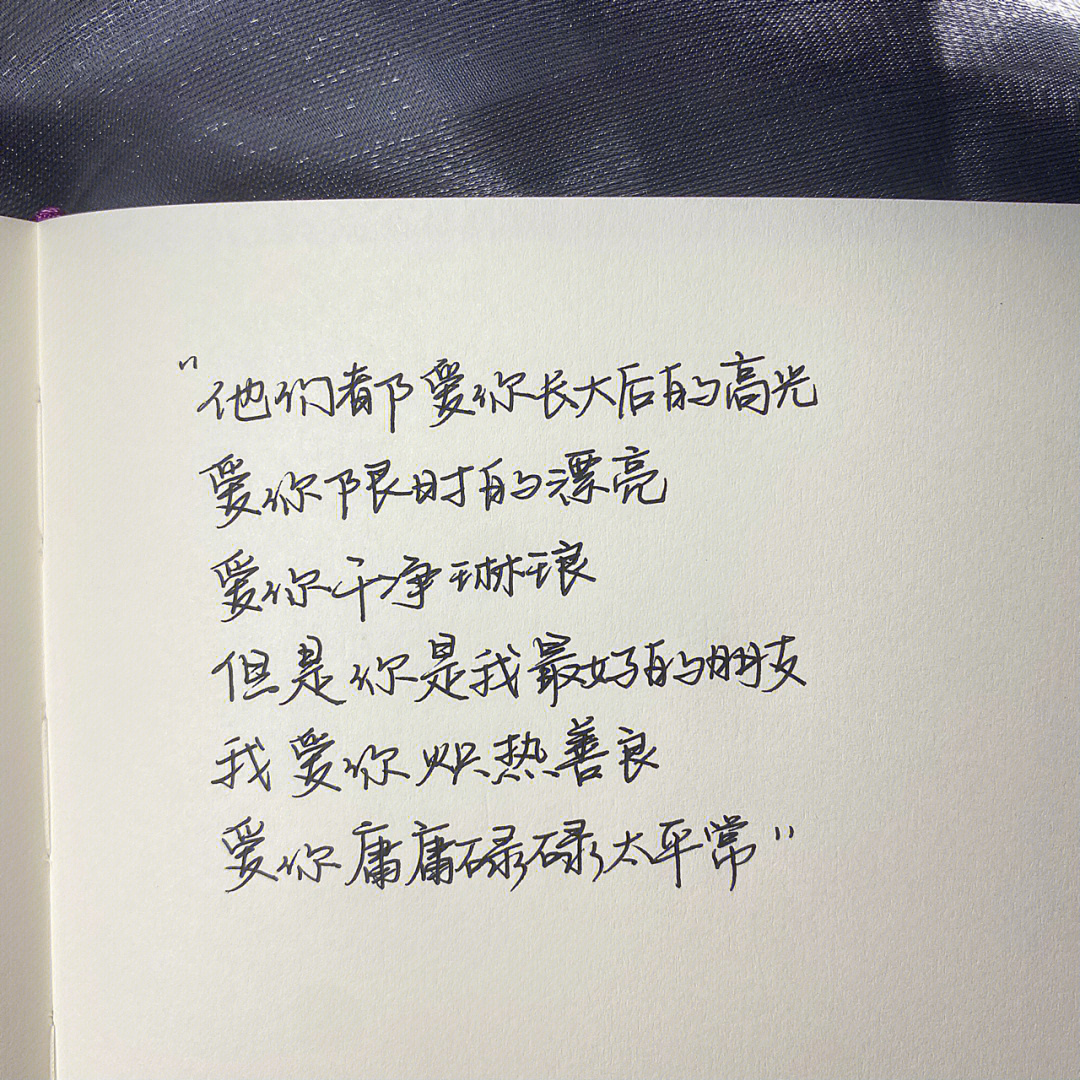 "他们都爱你长大后的高光
爱你限时的漂亮
爱你干净琳琅
但是你是我最好的朋友
我爱你炽热善良
爱你庸庸碌碌太平常"